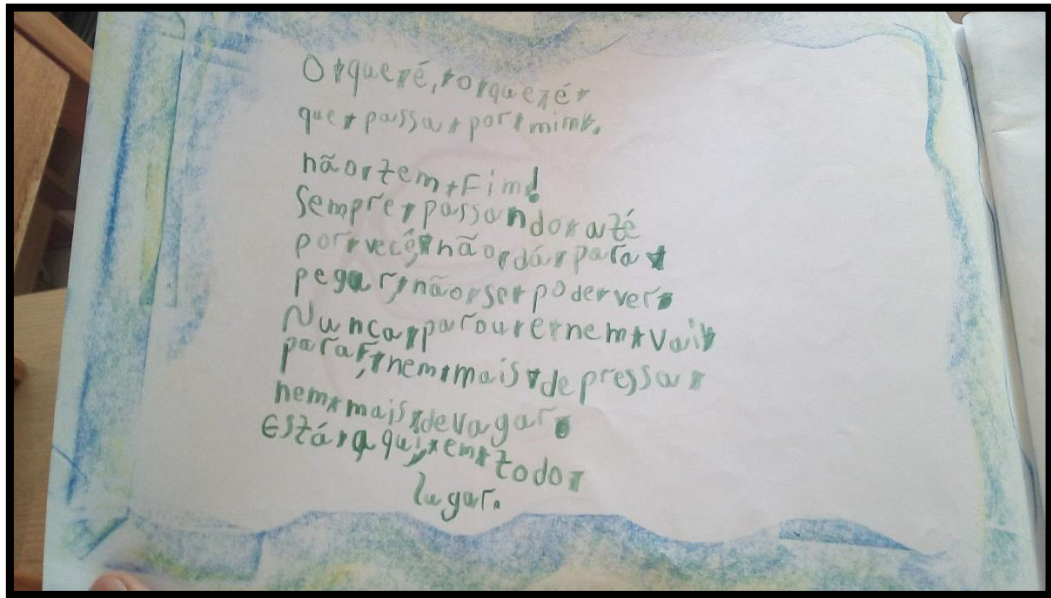 O que é, o que é
que passa por mim.
não tem Fim!
Sempre passando até
por vecê, não dá para
pegar, não se poder ver
Nunca parou e nem vai
parar, nem mais depressa
nem mais devagar.
Está aqui, em todo
lugar.